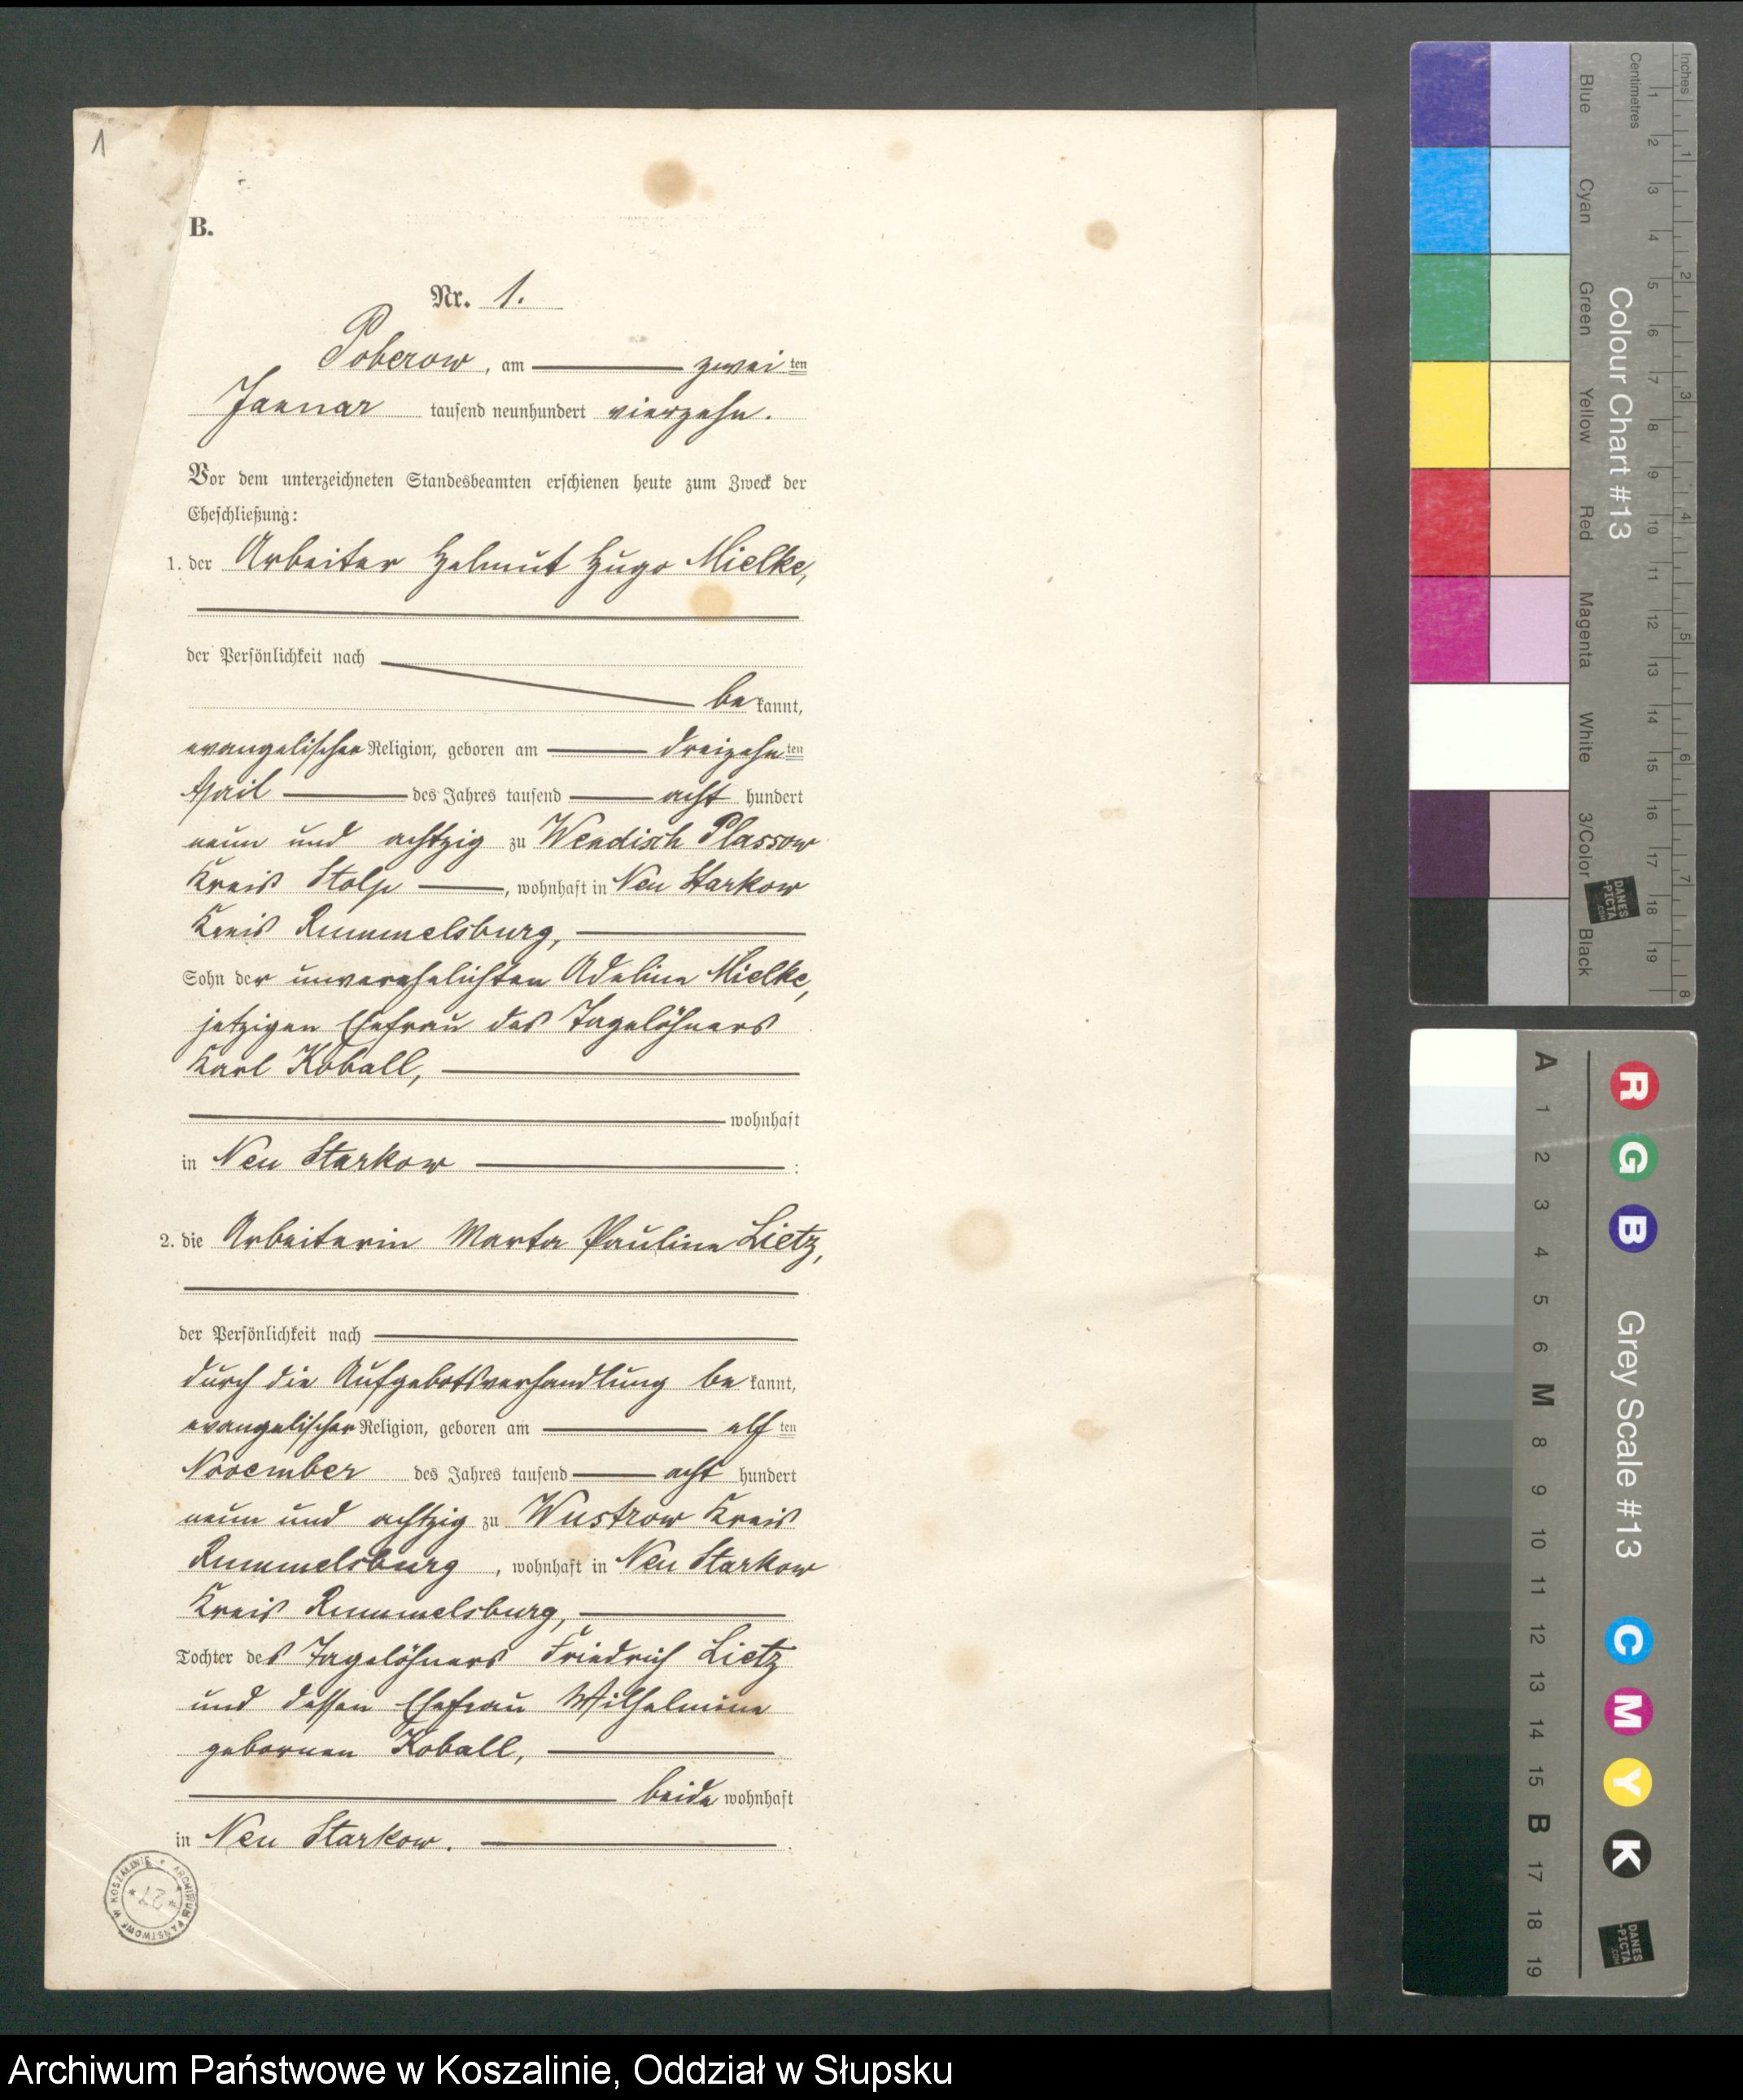 1
B.
Nr. 1.
Poberow, am zweiten
Januar tausend neunhundert vierzehn.
Vor dem unterzeichneten Standesbeamten erschienen heute zum Zweck der
Eheschließung:
1. der Arbeiter Helmut Hugo Mielke,
der Persönlichkeit nach
bekannt,
evangelischer Religion, geboren am dreizehnten
April des Jahres tausend acht hundert
neun und achtzig zu Wendisch Plassow
Kreis Stolp, wohnhaft in Neu Starkow
Kreis Rummelsburg,
Sohn der unverehelichten Adeline Mielke,
jetzigen Ehefrau des Tagelöhners
Karl Koball,
wohnhaft
in Neu Starkow :
2. die Arbeiterin Marta Pauline Lietz,
der Persönlichkeit nach
durch die Aufgebotsverhandlung bekannt,
evangelischer Religion, geboren am elften
November des Jahres tausend acht hundert
neun und achtzig zu Wustrow Kreis
Rummelsburg, wohnhaft in Neu Starkow
Kreis Rummelsburg,
Tochter des Tagelöhners Friedrich Lietz
und dessen Ehefrau Wilhelmine
gebornen Koball,
beide wohnhaft
in Neu Starkow.
ARCHIWUM PAŃSTWOWE W KOSZALINIE
* 27 *
Inches
Centimetres
1 2 3 4 5 6 7 8 9 10 11 12 13 14 15 16 17 18 19
1 2 3 4 5 6 7 8
Blue Cyan Green Yellow Red Magenta White 3/Color Black
Colour Chart #13
DANES
-PICTA
.COM
A 1 2 3 4 5 6 M 8 9 10 11 12 13 14 15 B 17 18 19
R G B
Grey Scale #13
C M Y K
DANES
-PICTA
.COM
Archiwum Państwowe w Koszalinie, Oddział w Słupsku